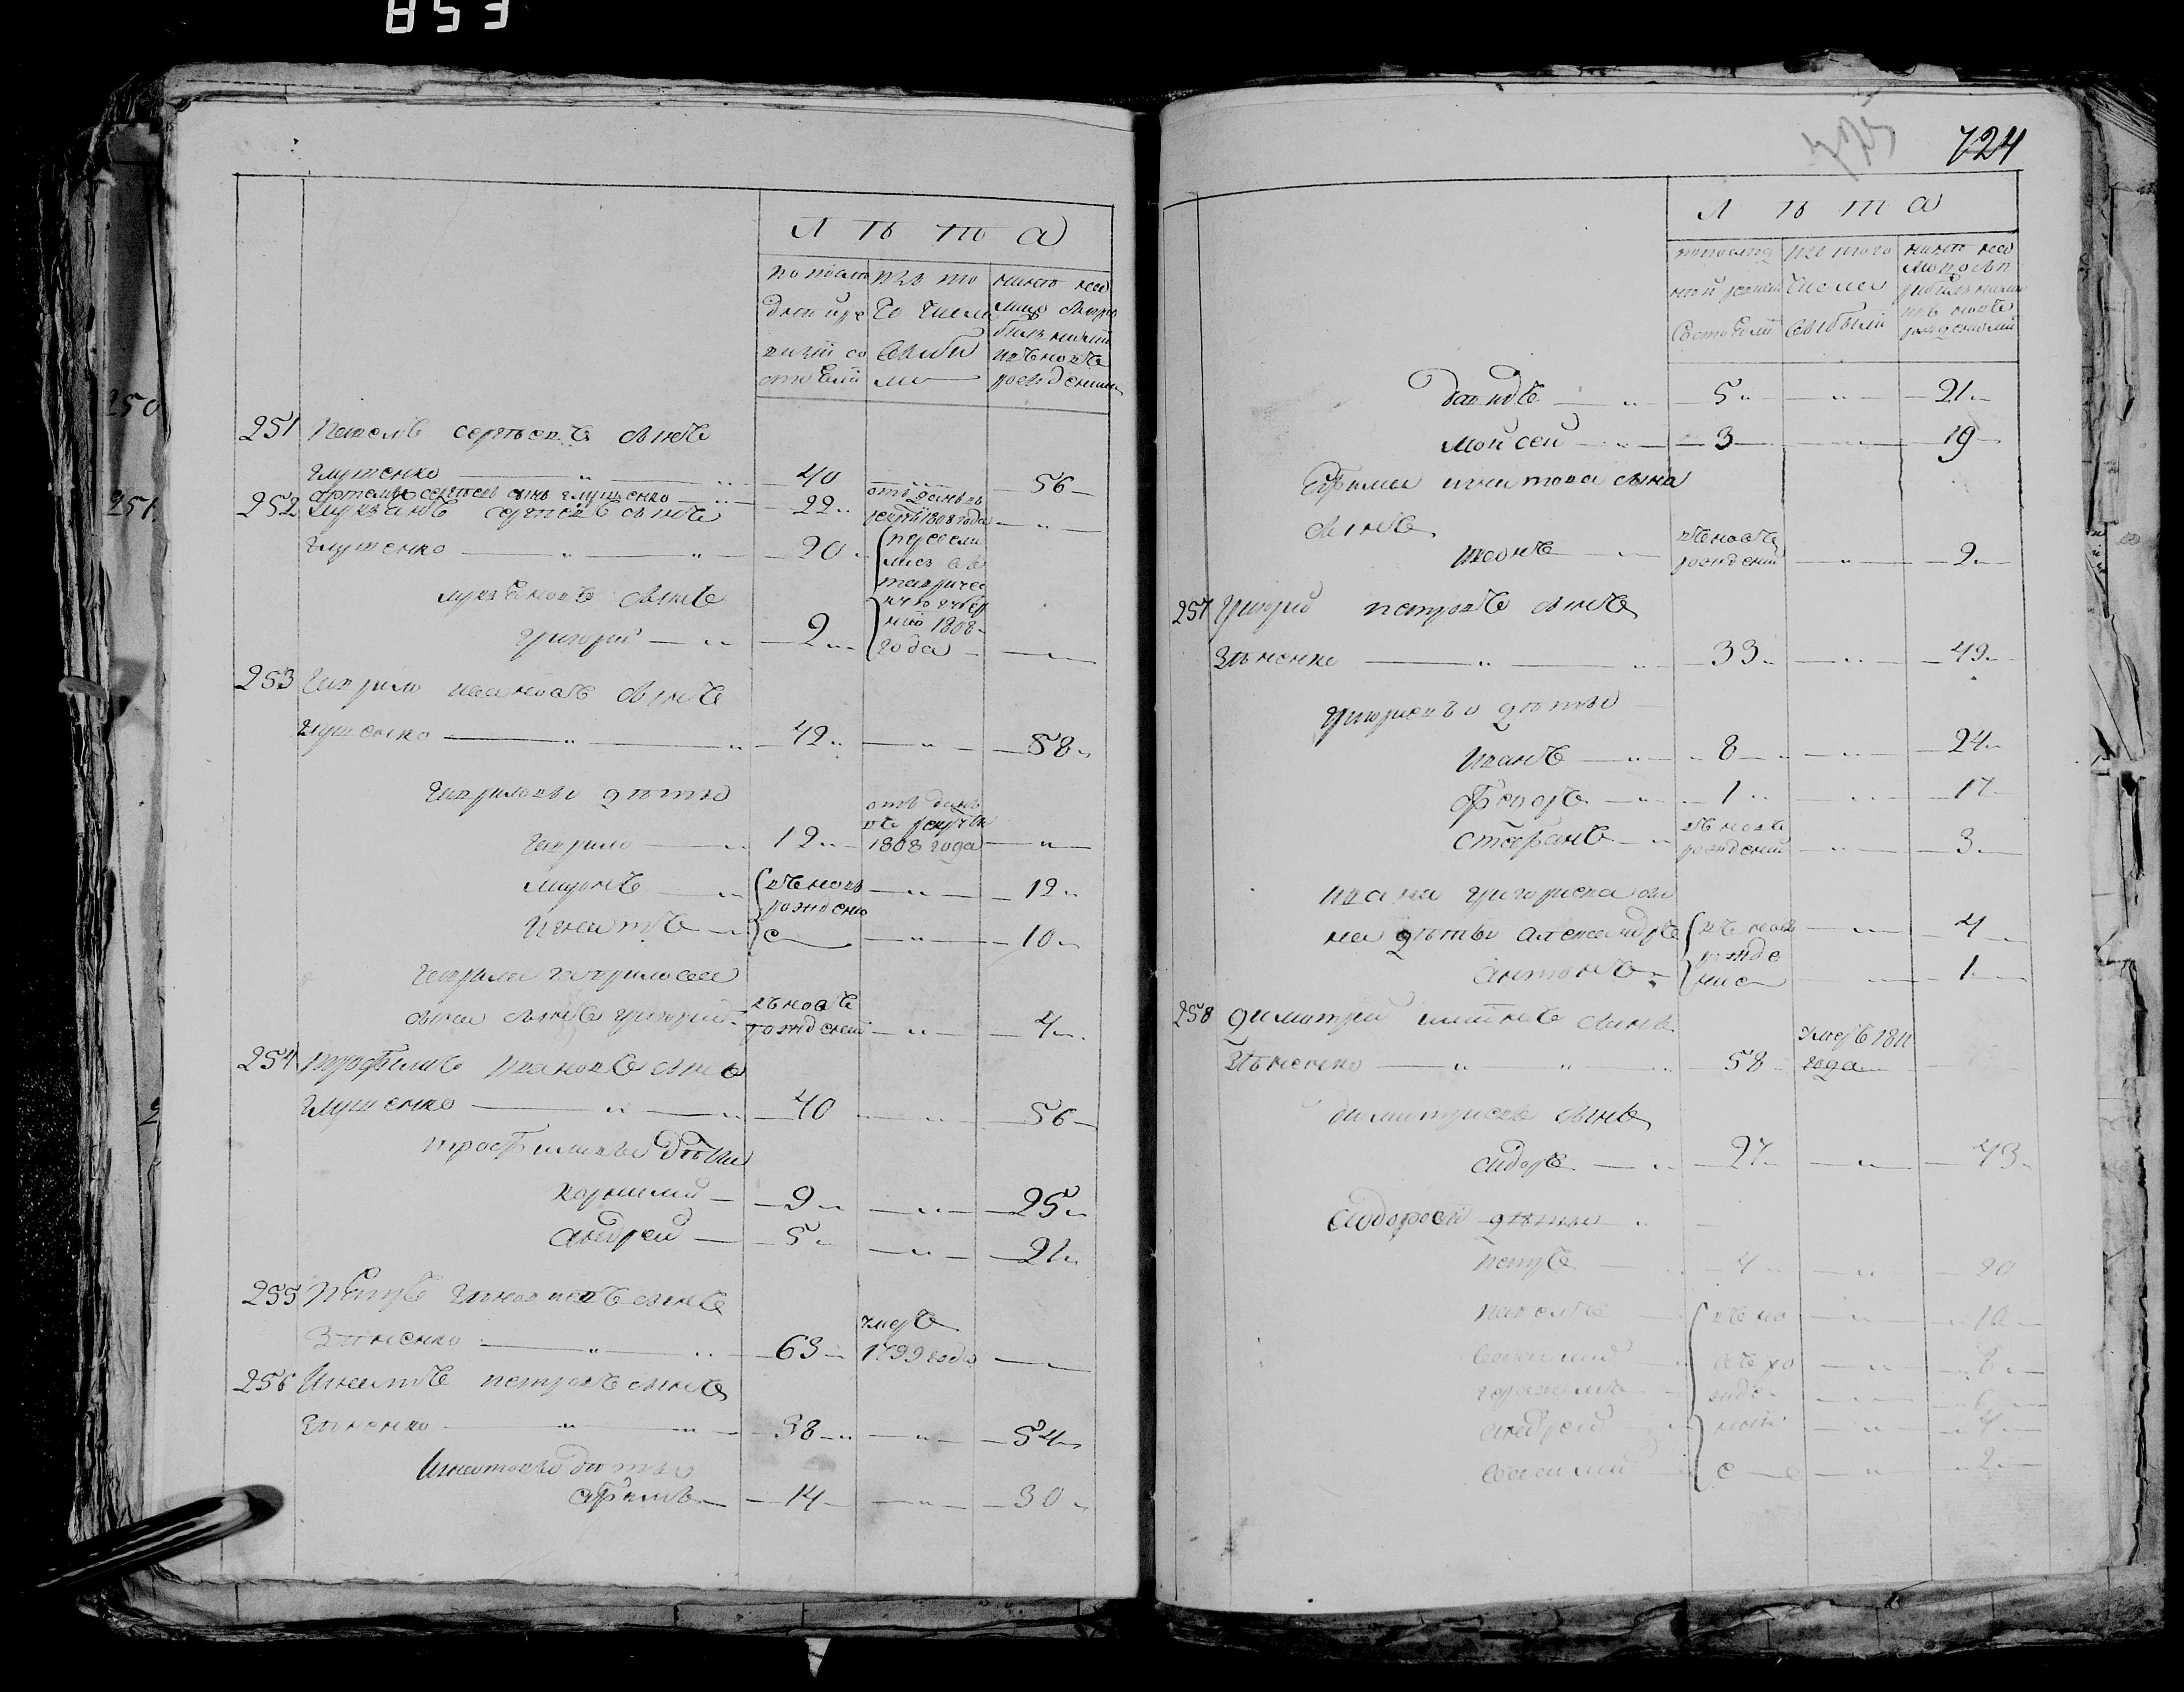 853
Л ѣ т а
по послѣ дней ре визіи со стояли
изъ то го числа выбы ло
нынѣ на лицо съ при былыми и въновь рожденными
250
251
251 Павелъ Сергѣевъ сынъ
Глущенко 40 56
Артемъ Сергѣевъ сынъ Глущенко 22 отданъ въ рекруты 1808 года
252 Лукьянъ Сергѣевъ сынъ
Глущенко 20
пересели лись въ таврическую губернию 1808 года
Лукьяновъ сынъ
Григорей 2
253 Гаврило Ивановъ сынъ
Глущенко 42 58
Гавриловы дѣти
Гаврило 12 отданъ въ рекруты 1808 года
Миронъ въновь рожденные 12
Игнатъ 10
Гаврила Гаврилова
сына сынъ Григорей въновь рожденный 4
254 Трофимъ Ивановъ сынъ
Глущенко 40 56
Трофимовы дѣти
Корнилий 9 25
Андрей 5 21
255 Петръ сынъ
Зѣненко 63 умеръ 1799 года
256 Игнатъ Петровъ сынъ
Зѣненко 38 54
Игнатовы дѣти
Ефимъ 14 30
724
Л ѣ т а
по послѣдней ревизіи состояли
изъ того числа выбыли
нынѣ на лицо съ прибылыми и въ новь рожденными
Давидъ 5 21
Мойсей 3 19
Ефима Игнатова сына
сынъ
Иванъ въновь рожденный 2
257 Григорей Петровъ сынъ
Зѣненко 33 49
Григорьевы дѣти
Иванъ 8 24
Федоръ 1 17
Стефанъ въновь рожденный 3
Ивана Григорьева сы
на дѣти Александръ въновь рожденные 4
Антонъ 1
258 Димитрий сынъ
Зѣненко 58 умеръ 1811 года
Димитриевъ сынъ
Сидоръ 27 43
Сидоровы дѣти
Петръ 4 20
Павелъ въновь рожденные 10
8
Герасимъ 6
Андрей 4
2